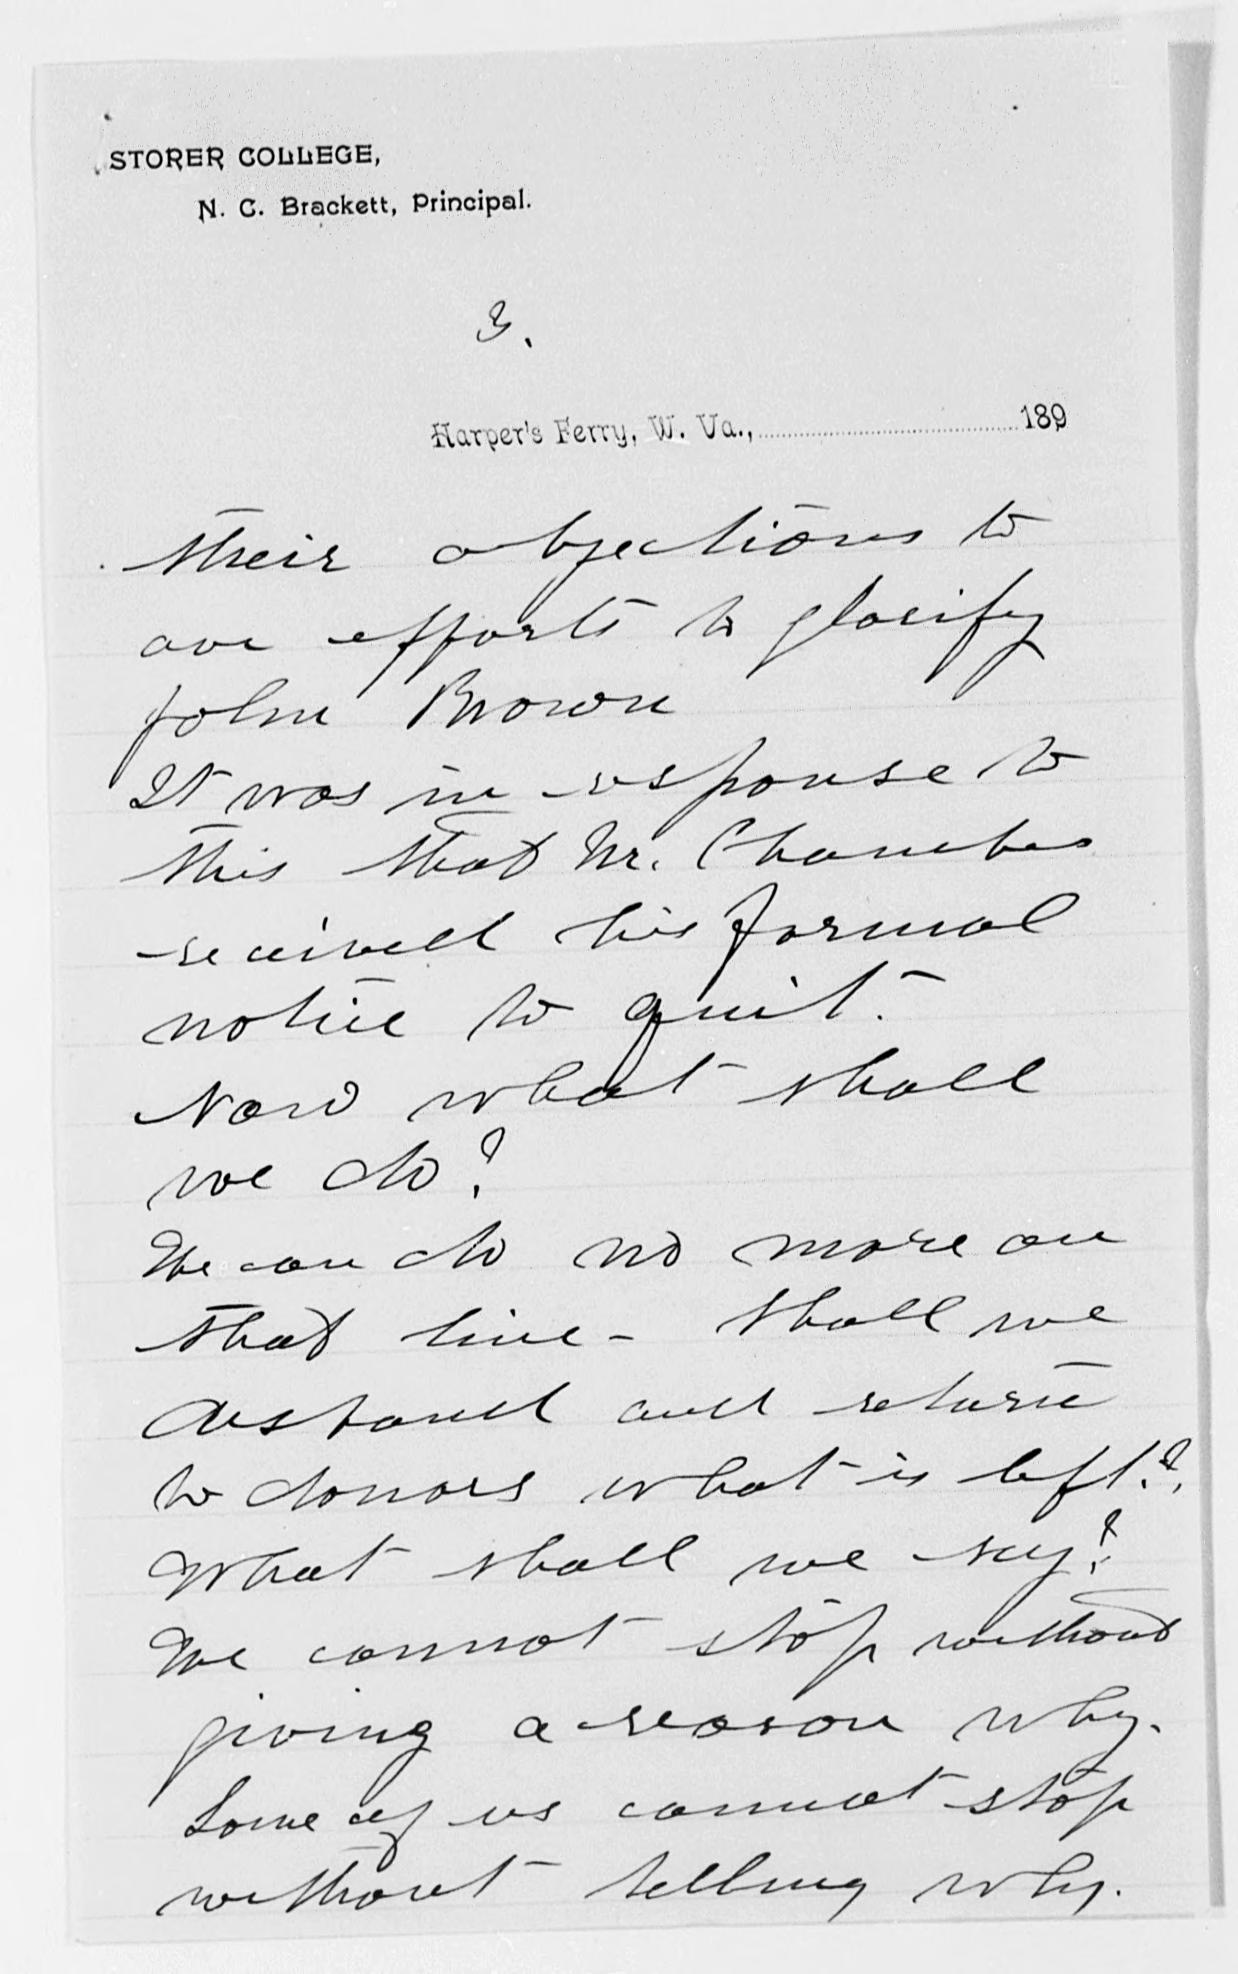 STORER COLLEGE,
N. C. Brackett, Principal.
3.
Harper's Ferry, W. Va., 189
their objections to
our efforts to glorify
John Brown
It was in response to
this that Mr. Chambers
received his formal
notice to quit.
Now what shall
we do?
We can do no more on
that line - shall we
disband and return
to donors what is left?
What shall we say?
We cannot stop without
giving a reason why.
Some of us cannot stop
without telling why.